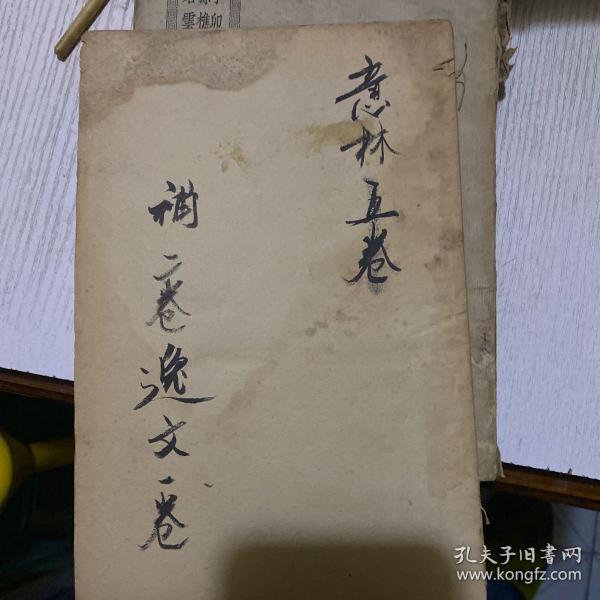 意林五卷
補二卷逸文一卷
孔夫子旧书网
www.kongfz.com